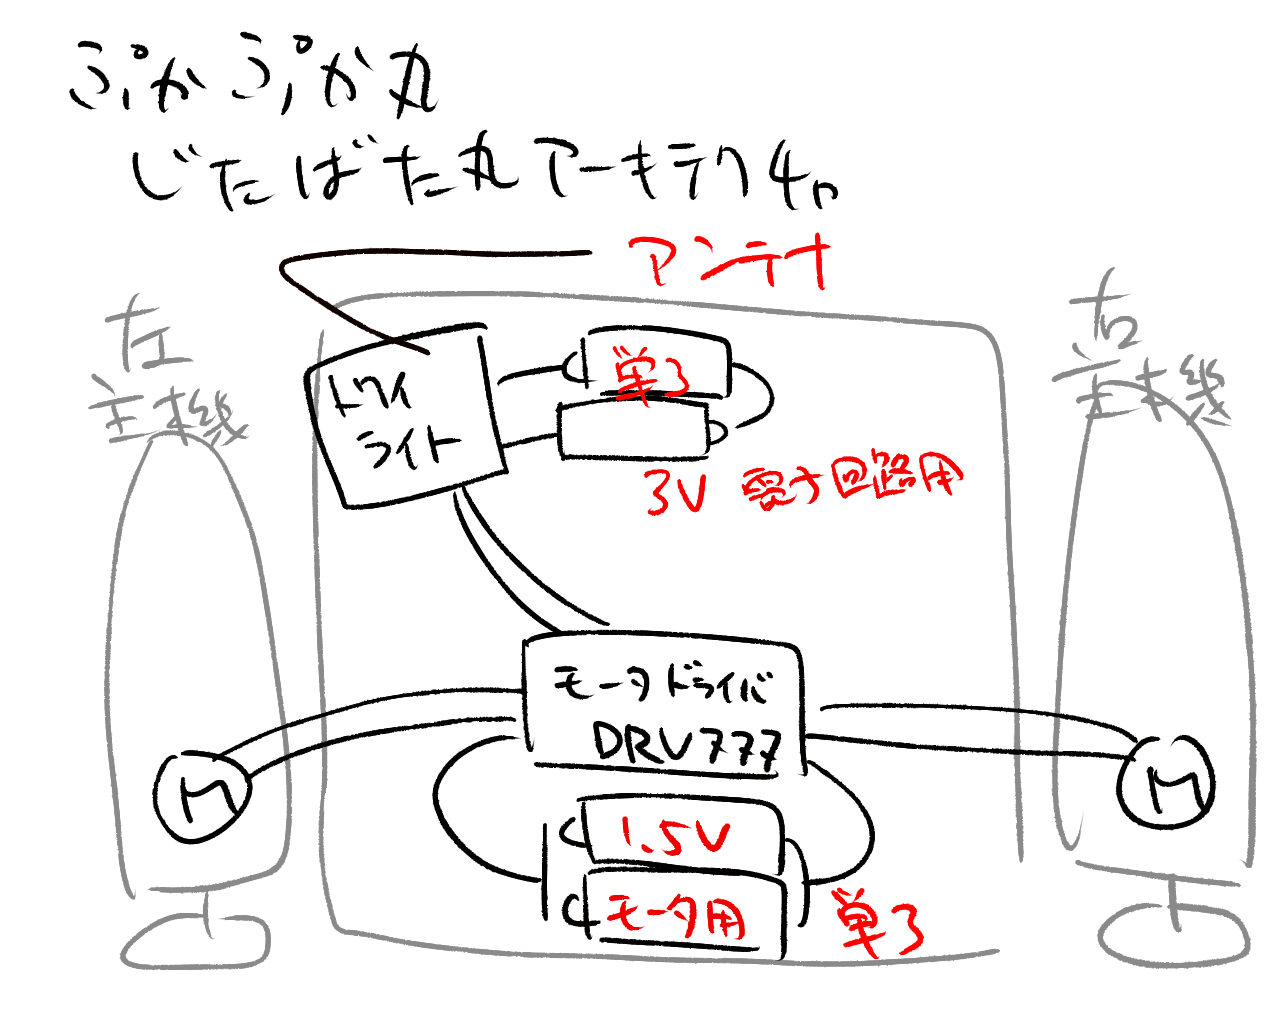 ぷかぷか丸
じたばた丸アーキテクチャ
アンテナ
左
主本機
右
主本機
トワイ
ライト
単3
3V 電子回路用
モータドライバ
DRV777
M
M
1.5V
モータ用
単3